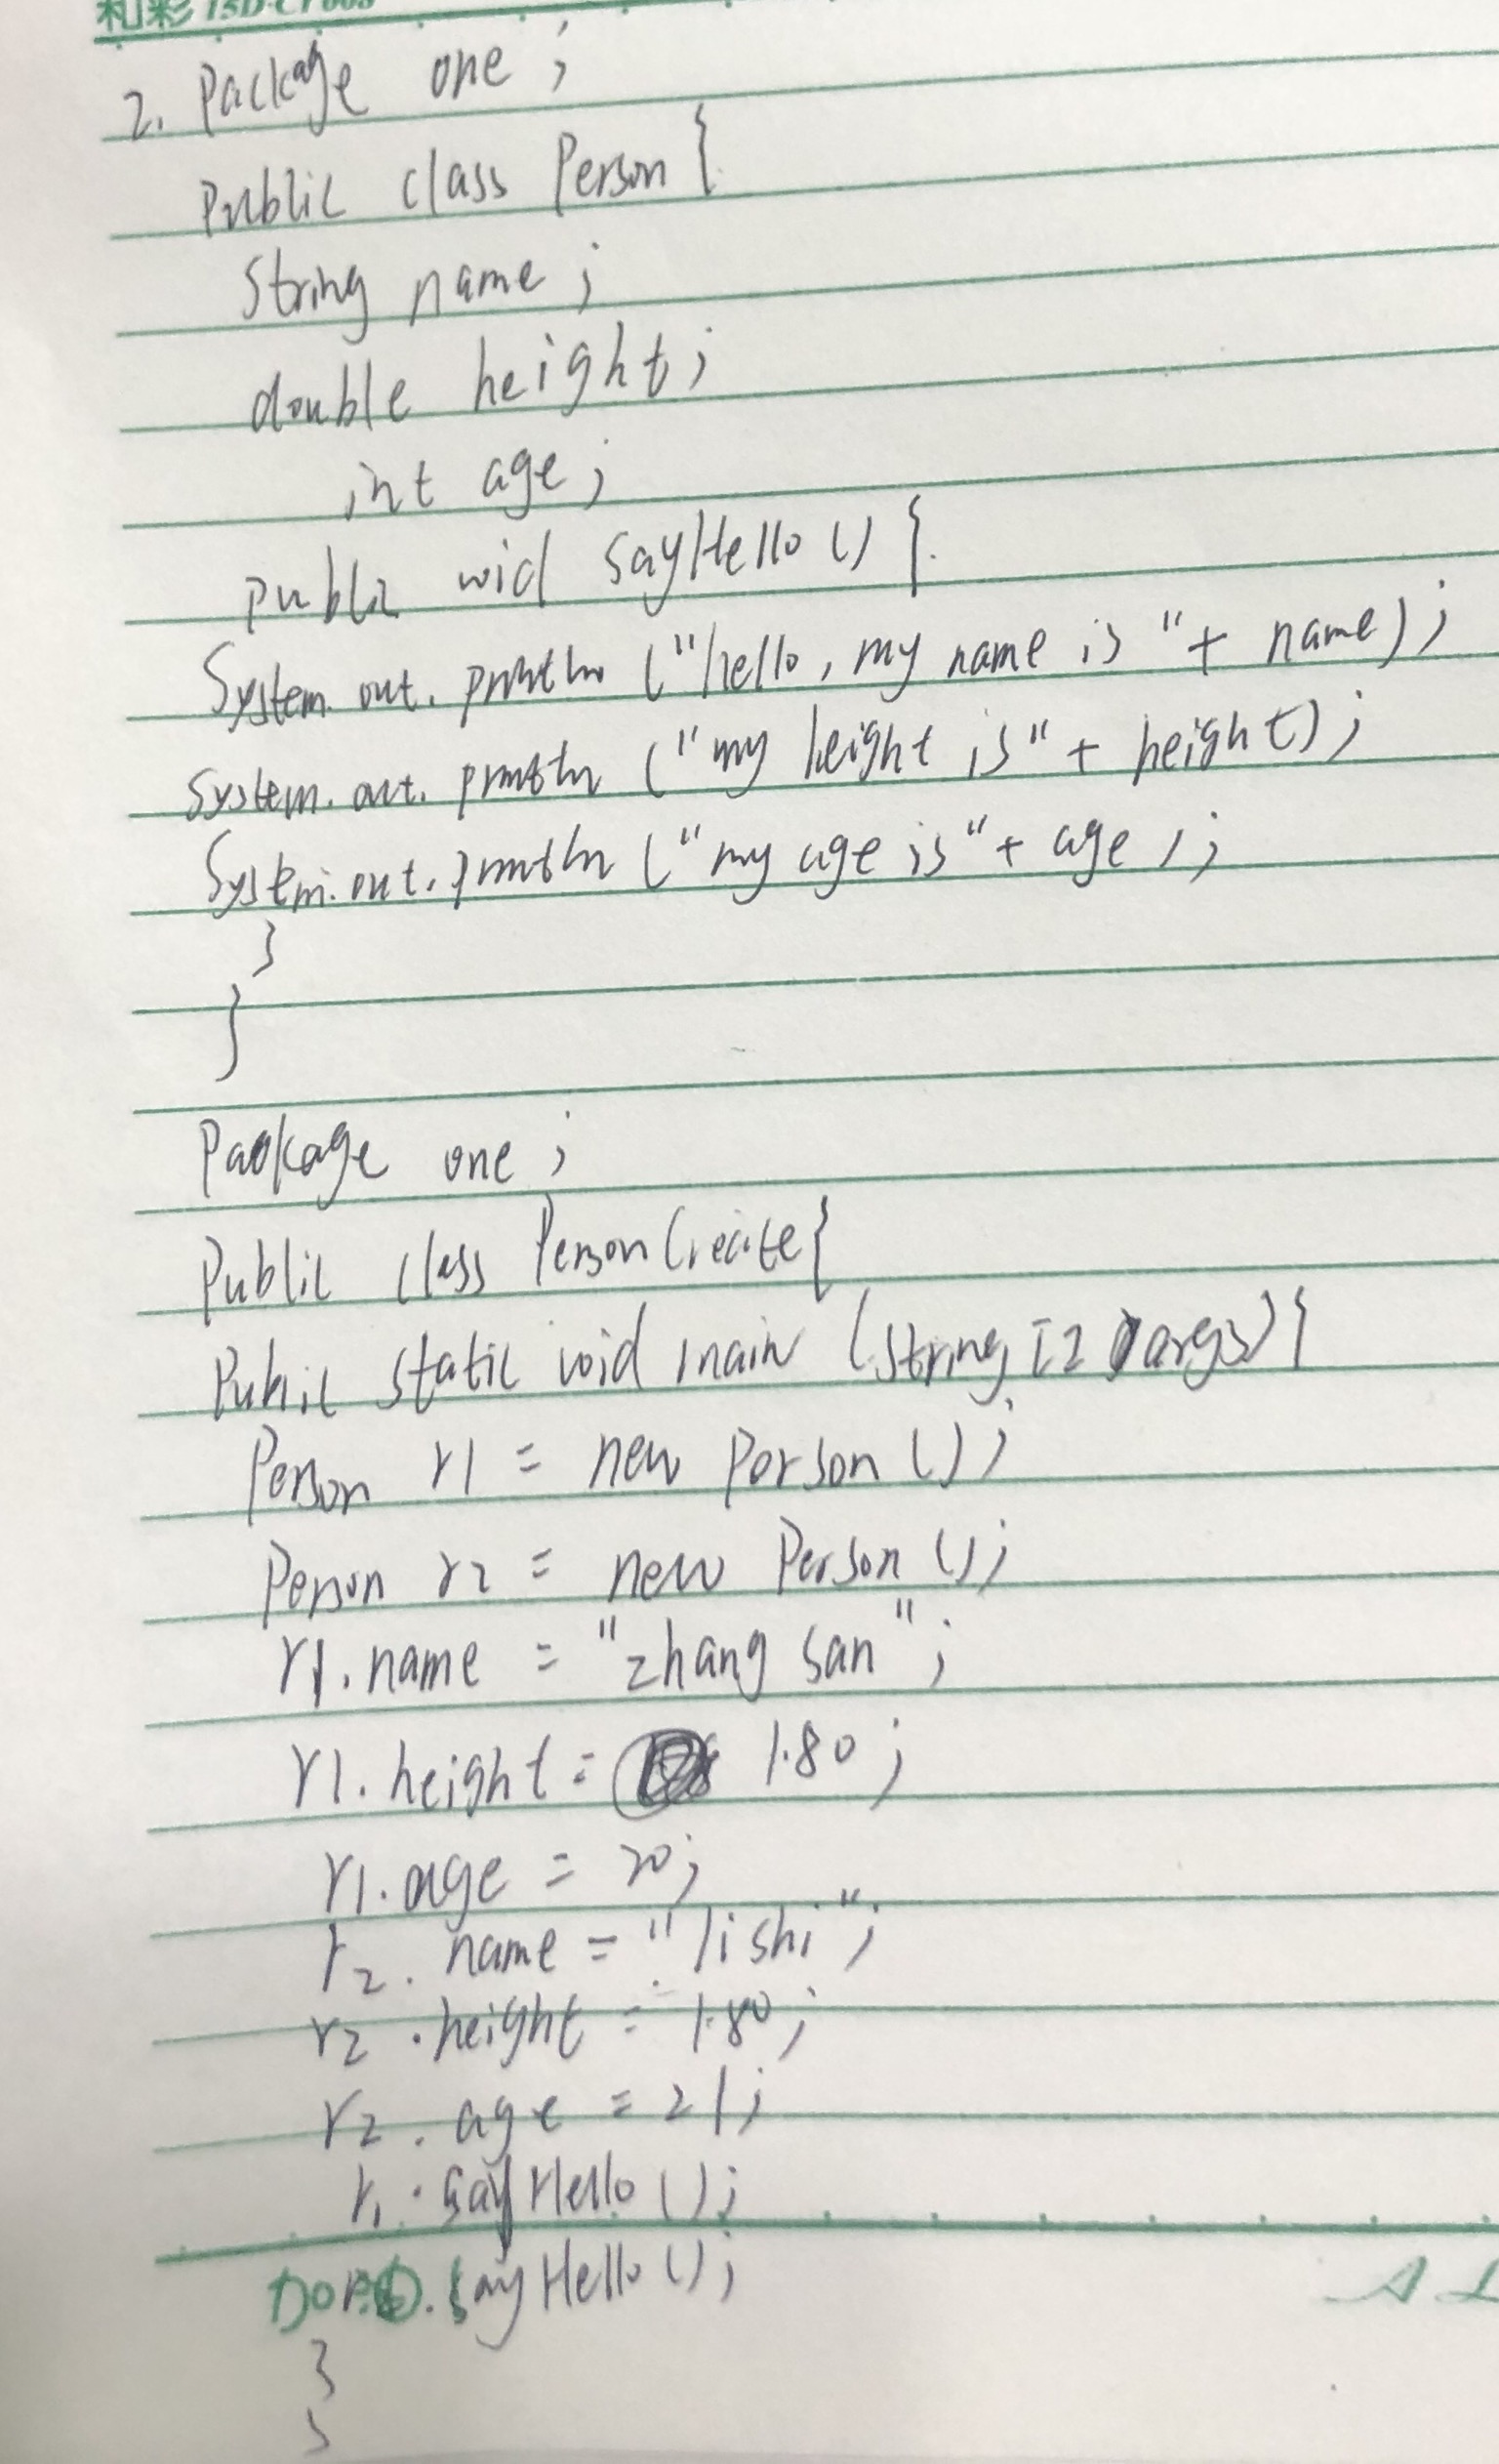 和彩 15D-CY003
2. Package one ;
Public class Person {
String name ;
double height ;
int age ;
public void sayHello () {
System.out.println ("hello, my name is "+ name) ;
System.out.println ("my height is" + height) ;
System.out.println ("my age is"+ age ) ;
}
}
Package one ;
Public class PersonCreate{
Public static void main (String [] args){
Person r1 = new Person () ;
Person r2 = new Person () ;
r1.name = "zhang san" ;
r1.height = 1.80 ;
r1.age = 20 ;
r2.name = "lishi" ;
r2.height = 1.80 ;
r2.age = 21 ;
r1.sayHello () ;
r2.sayHello () ;
}
}